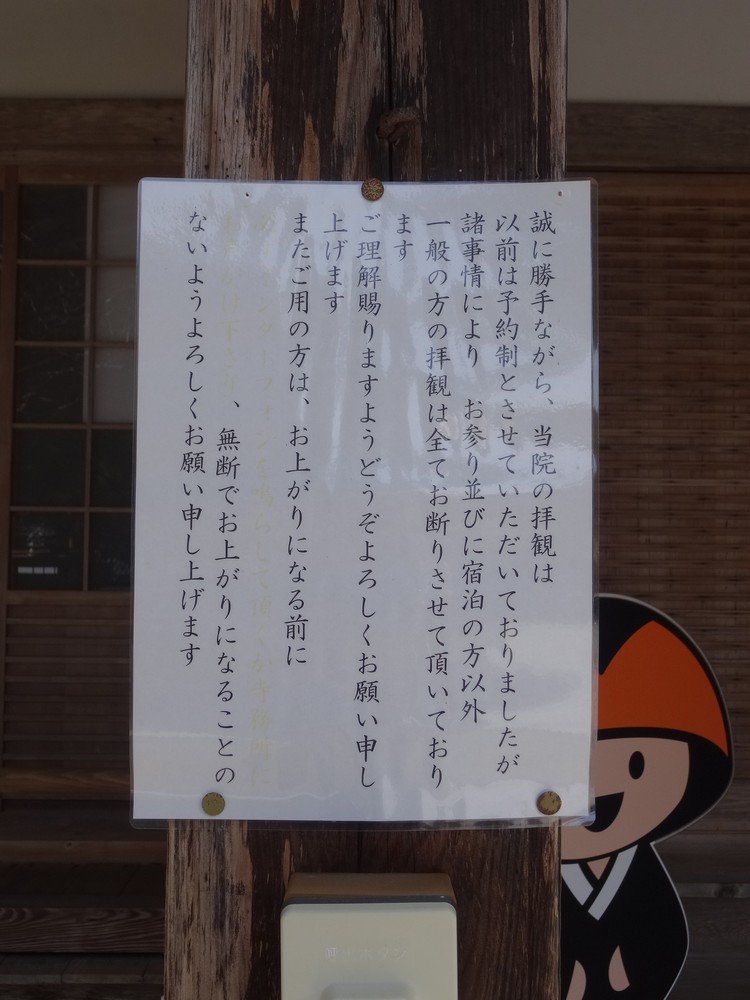 誠に勝手ながら、当院の拝観は
以前は予約制とさせていただいておりましたが
諸事情により　お参り並びに宿泊の方以外
一般の方の拝観は全てお断りさせて頂いており
ます
ご理解賜りますようどうぞよろしくお願い申し
上げます
またご用の方は、お上がりになる前に
、無断でお上がりになることの
ないようよろしくお願い申し上げます